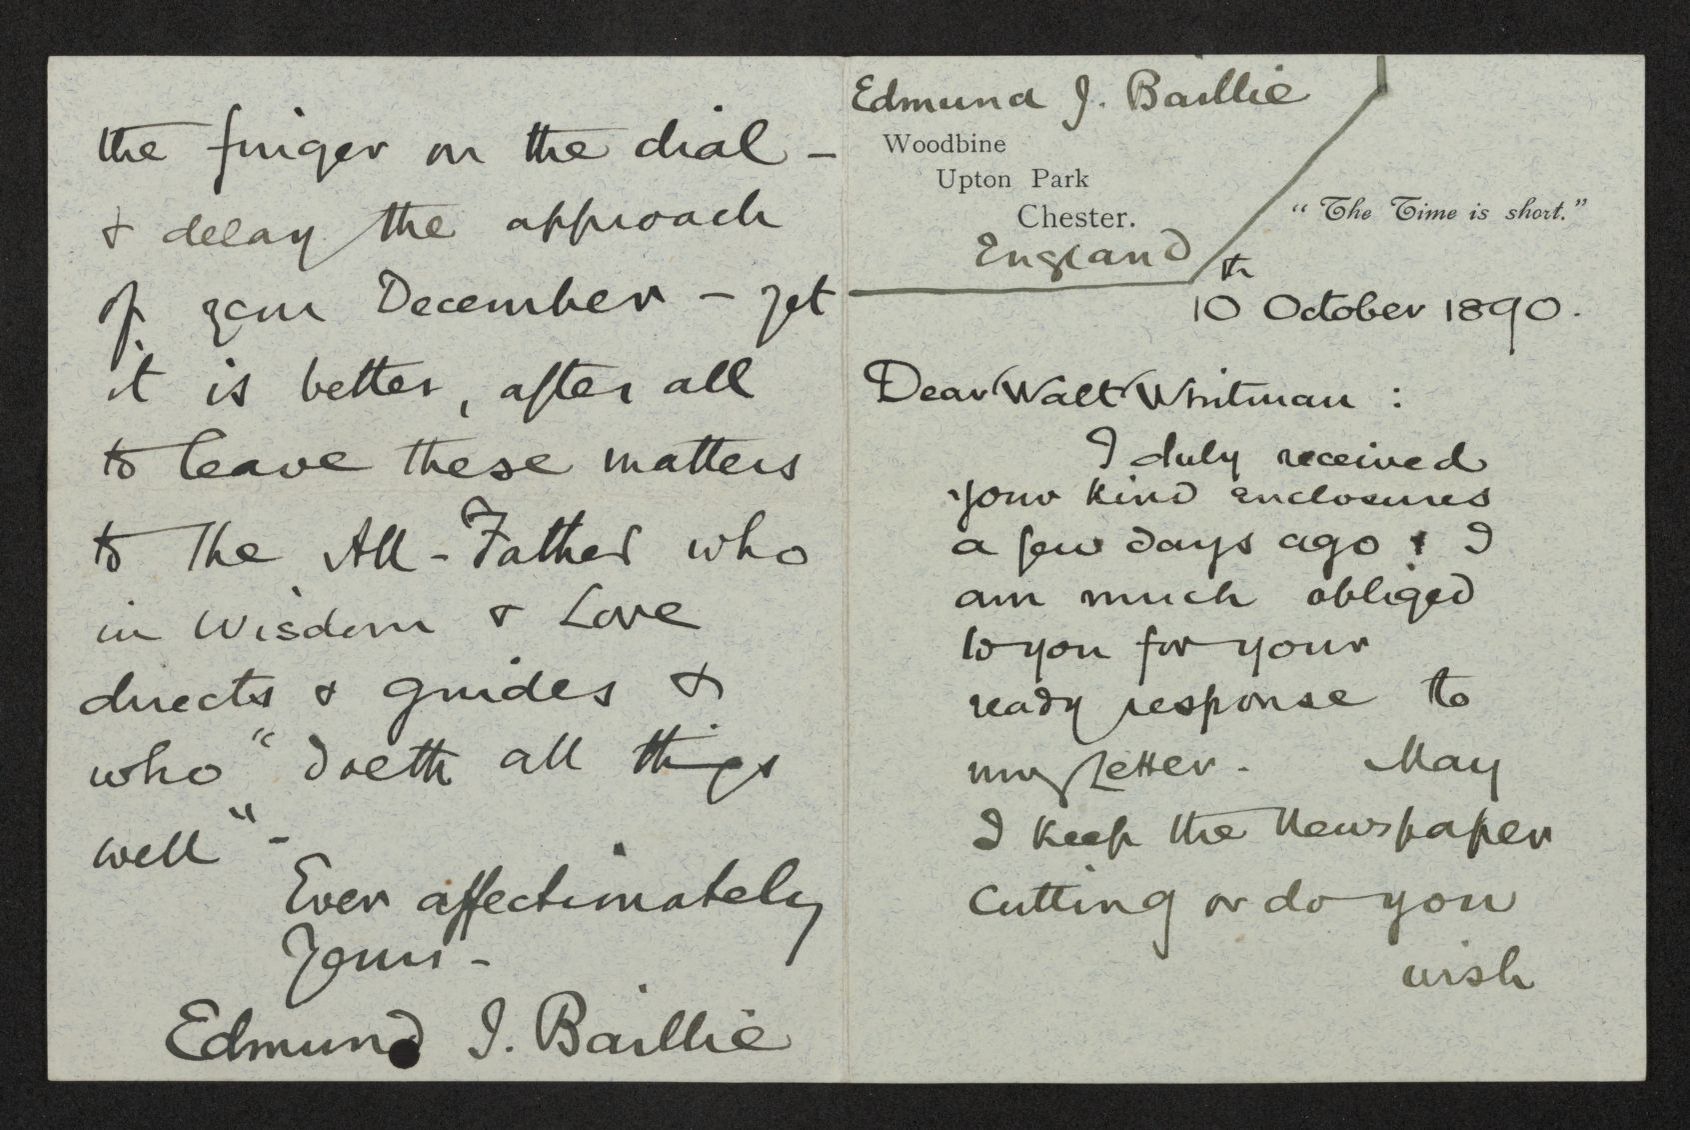 Edmund J. Baillie
Woodbine
Upton Park
Chester.
England
"The Time is short."
10th October 1890.
Dear Walt Whitman :
I duly received
your kind enclosures
a few days ago & I
am much obliged
to you for your
ready response to
my letter. May
I keep the Newspaper
Cutting or do you
wish
the finger on the dial –
& delay the approach
of your December – yet
it is better, after all
to leave these matters
to The All-Father who
in Wisdom & Love
directs & guides &
who "doeth all things
well" –
Ever affectionately
Yours –
Edmund J. Baillie